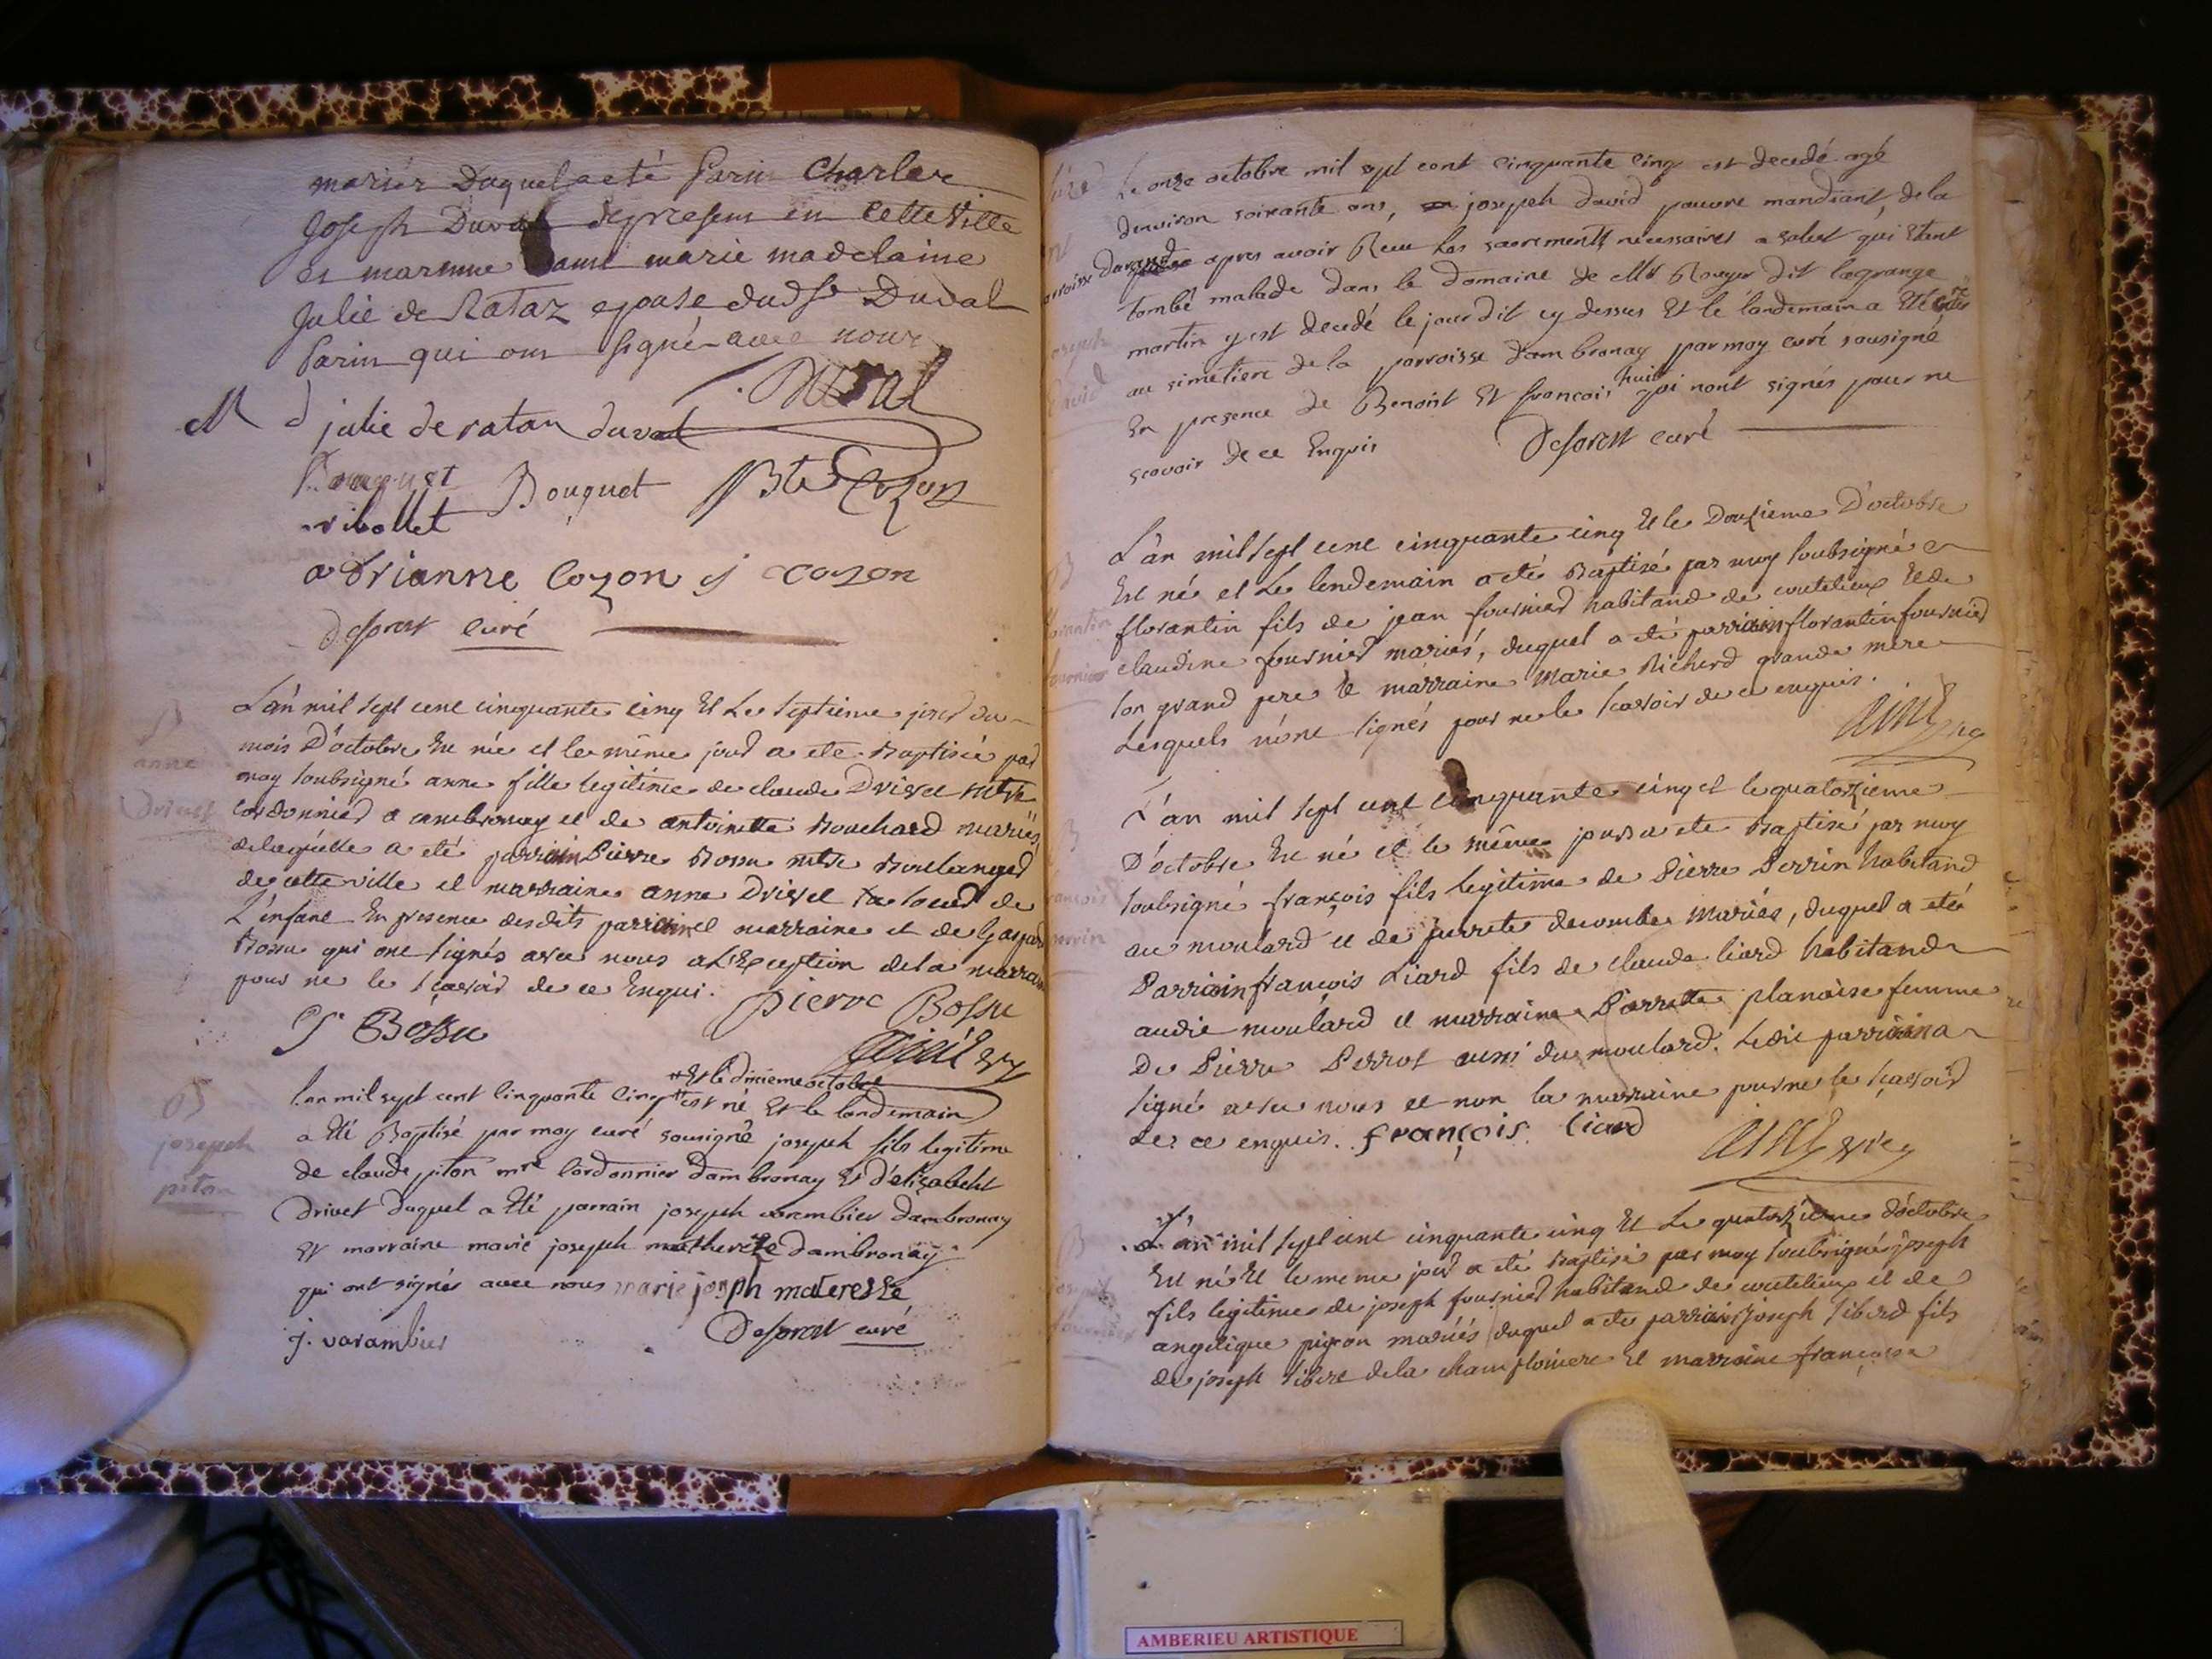 mariés Duquel a eté Parin Charles
Joseph Duval depresens en cette ville
et marenne Dame marie madelaine
Julie de Rataz epouse dud Sr Duval
Parin qui ont signé avec nous
Duval
M d julie de ratan duval
Bouquet Bte Cozon
ribollet
adrianne Cozon j cozon
Deforest curé
L'an mil sept cent cinquante cinq Et Le septieme jour du
mois D'octobre Est née et le même jour a eté Baptisée par
anne
moy soubsigné anne fille legitime de claude Drivet mtre
Drivet
cordonnier a ambronay et de antoinette Bouchard mariés,
de laquelle a eté parrain Pierre Bossu mtre Boulanger
de cette ville et marraine anne Drivet la soeur de
L'enfant En presence desdits parrain et marraine et de Gaspard
Bossu qui ont signés avec nous a L'Exception de la marraine
pour ne le sçavoir de ce Enqui. pierre Bossu
Bossu
Lan mil sept cent cinquante cinq # est né Et le landemain
# Et le dixieme octobre
a Eté Baptisé par moy curé sousigné joseph fils legitime
joseph
de claude piton mre cordonnier dambronay Et d'elizabeht
piton
Drivet Duquel a Eté parrain joseph varambier dambronay
Et marraine marie joseph matherezze dambronay
qui ont signés avec nous marie joseph materesse
j. varambier Deforest curé
Le onze octobre mil sept cent cinquante cinq est decedé agé
denviron soixante ans, joseph david pauvre mandiant, de la
parroisse apres avoir Receu les sacrements necessaires a salut qui Etant
tombé malade dans le domaine de Mr Rouyer dit lagrange
joseph
martin y est decedé le jour dit cy dessus Et le landemain a Eté
david
au simetiere de la parroisse d'ambronay par moy curé sousigné
En presence de Benoist Et francois huit qui nont signés pour ne
scavoir de ce Enquis Deforest curé
L'an mil sept cent cinquante cinq Et le Douzieme D'octobre
B
Est né et Le lendemain a eté Baptisé par moy soubsigné
florantin
florantin fils de jean fournier habitand de coutelieux Et de
fournier
claudine fournier mariés, duquel a eté parrain florantin fournier
son grand pere Et marraine Marie Richerd grande mère
Lesquels n'ont signés pour ne le scavoir de ce enquis.
L'an mil sept cent cinquante cinq et le quatorzieme
B
D'octobre Est né et le même jour a eté Baptisé par moy
françois
soubsigné françois fils legitime de Pierre Perrin habitand
perrin
au moulard et de perrete decombe Mariés, duquel a eté
Parrain françois Liard fils de claude liard habitand
audit moulard et marraine Perrette planaise femme
De Pierre Perrot aussi du moulard. Ledit parrain a
signé avec nous et non la marraine pour ne le scavoir
de ce enquis. françois liard
L'an mil sept cent cinquante cinq Et Le quatorzieme d'octobre
B
Est né Et le meme jour a eté Baptisé par moy soubsigné joseph
joseph
fils legitime de joseph fournier habitand de coutelieux et de
fournier
angelique pigeon mariés duquel a eté parrain joseph siberd fils
de joseph sibert de la champloniere Et marraine françoise
AMBERIEU ARTISTIQUE